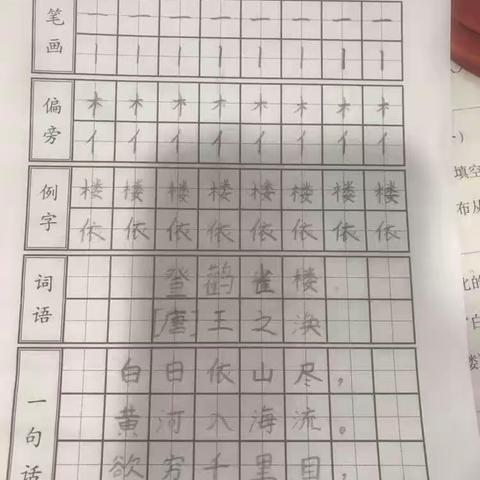 笔画 一 一 一 一 一 一 一 一
丨 丨 丨 丨 丨 丨 丨 丨
偏旁 木 木 木 木 木 木 木 木
亻 亻 亻 亻 亻 亻 亻 亻
例字 楼 楼 楼 楼 楼 楼 楼 楼
依 依 依 依 依 依 依 依
词语 登鹳雀楼
[唐]王之涣
一句话 白日依山尽，
黄河入海流。
欲穷千里目，
填空
布从